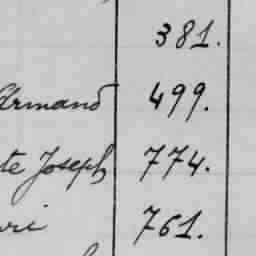 381.
Armand 499.
te Joseph 774.
ri 761.